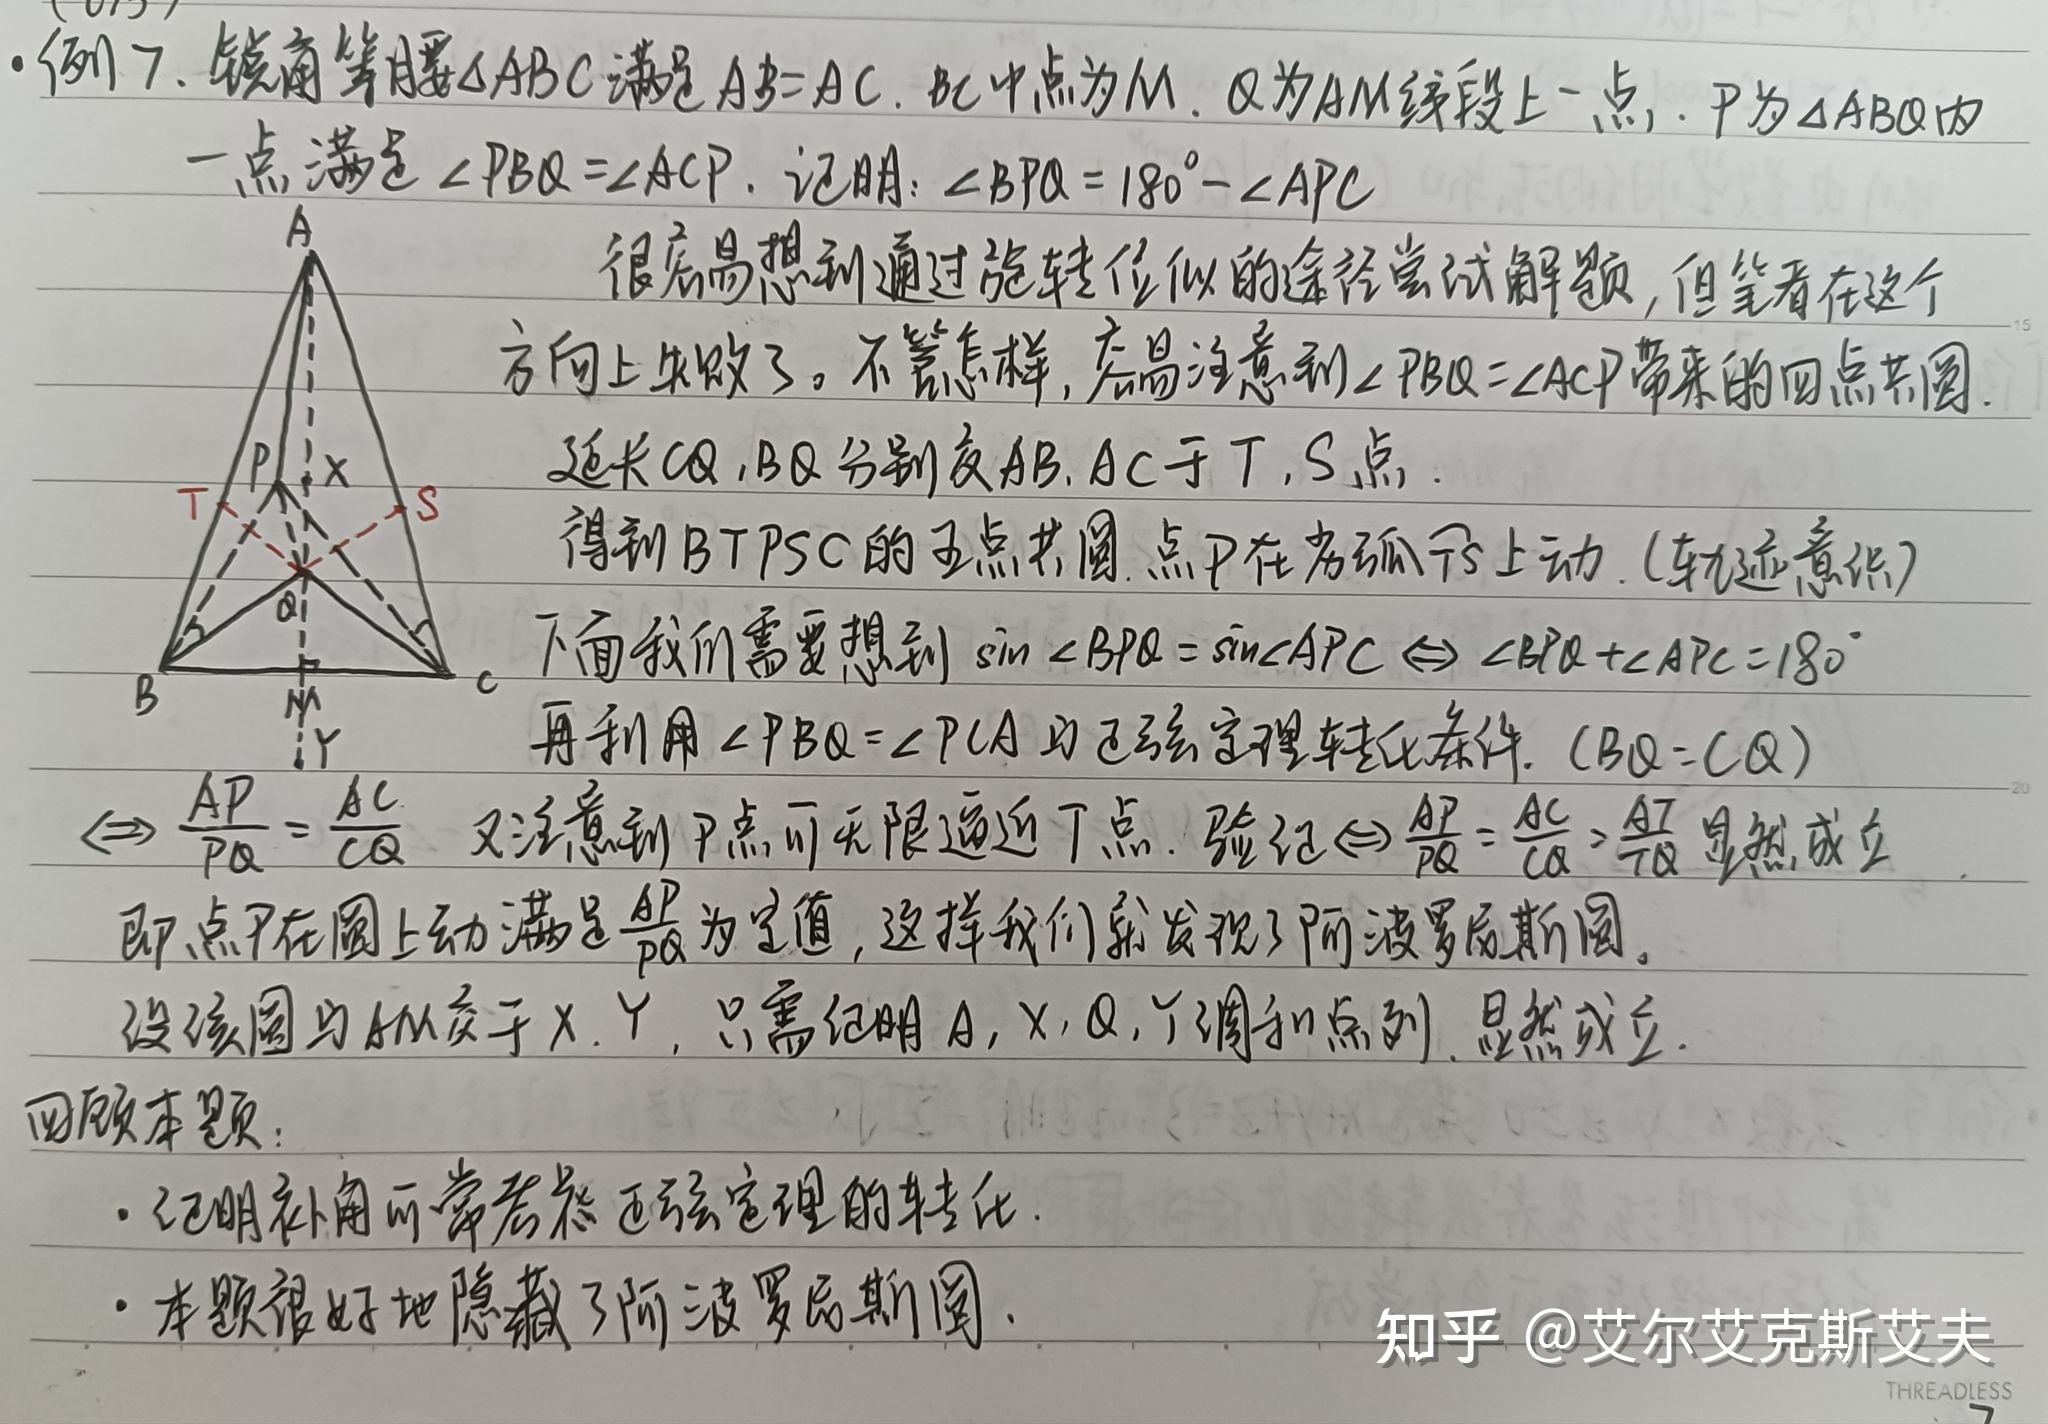 ·例7. 锐角等腰△ABC满足AB=AC. BC中点为M. Q为AM线段上一点. P为△ABQ内
一点满足∠PBQ=∠ACP. 证明: ∠BPQ=180°-∠APC
很容易想到通过旋转位似的途径尝试解题, 但笔者在这个
方向上失败了。不管怎样, 容易注意到∠PBQ=∠ACP带来的四点共圆.
延长CQ, BQ分别交AB, AC于T, S点.
得到BTPSC的五点共圆. 点P在劣弧TS上动. (轨迹意识)
下面我们需要想到 sin∠BPQ=sin∠APC ⇔ ∠BPQ+∠APC=180°
再利用∠PBQ=∠PCA与正弦定理转化条件. (BQ=CQ)
⇔ AP/PQ = AC/CQ 又注意到P点可无限逼近T点. 验证⇔ AP/PQ = AC/CQ = AT/TQ 显然成立.
即点P在圆上动满足AP/PQ为定值, 这样我们就发现了阿波罗尼斯圆。
设该圆与AM交于X. Y, 只需证明A, X, Q, Y调和点列. 显然成立.
回顾本题:
· 证明补角可常考虑正弦定理的转化.
· 本题很好地隐藏了阿波罗尼斯圆.
A
P
X
T
S
Q
B
M
C
Y
15
20
知乎 @艾尔艾克斯艾夫
THREADLESS
7